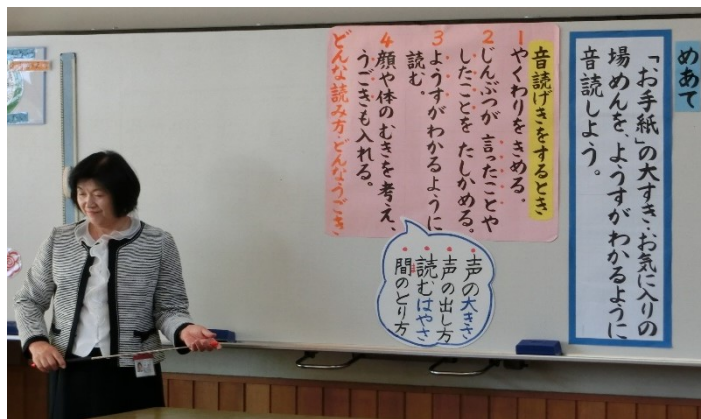 めあて
「お手紙」の大すき・お気に入りの
場めんを、ようすがわかるように
音読しよう。
音読げきをするとき
1やくわりをきめる。
2じんぶつが言ったことや
したことをたしかめる。
3ようすがわかるように
読む。
4顔や体のむきを考え、
うごきも入れる。
どんな読み方・どんなうごき
・声の大きさ
・声の出し方
・読むはやさ
・間のとり方